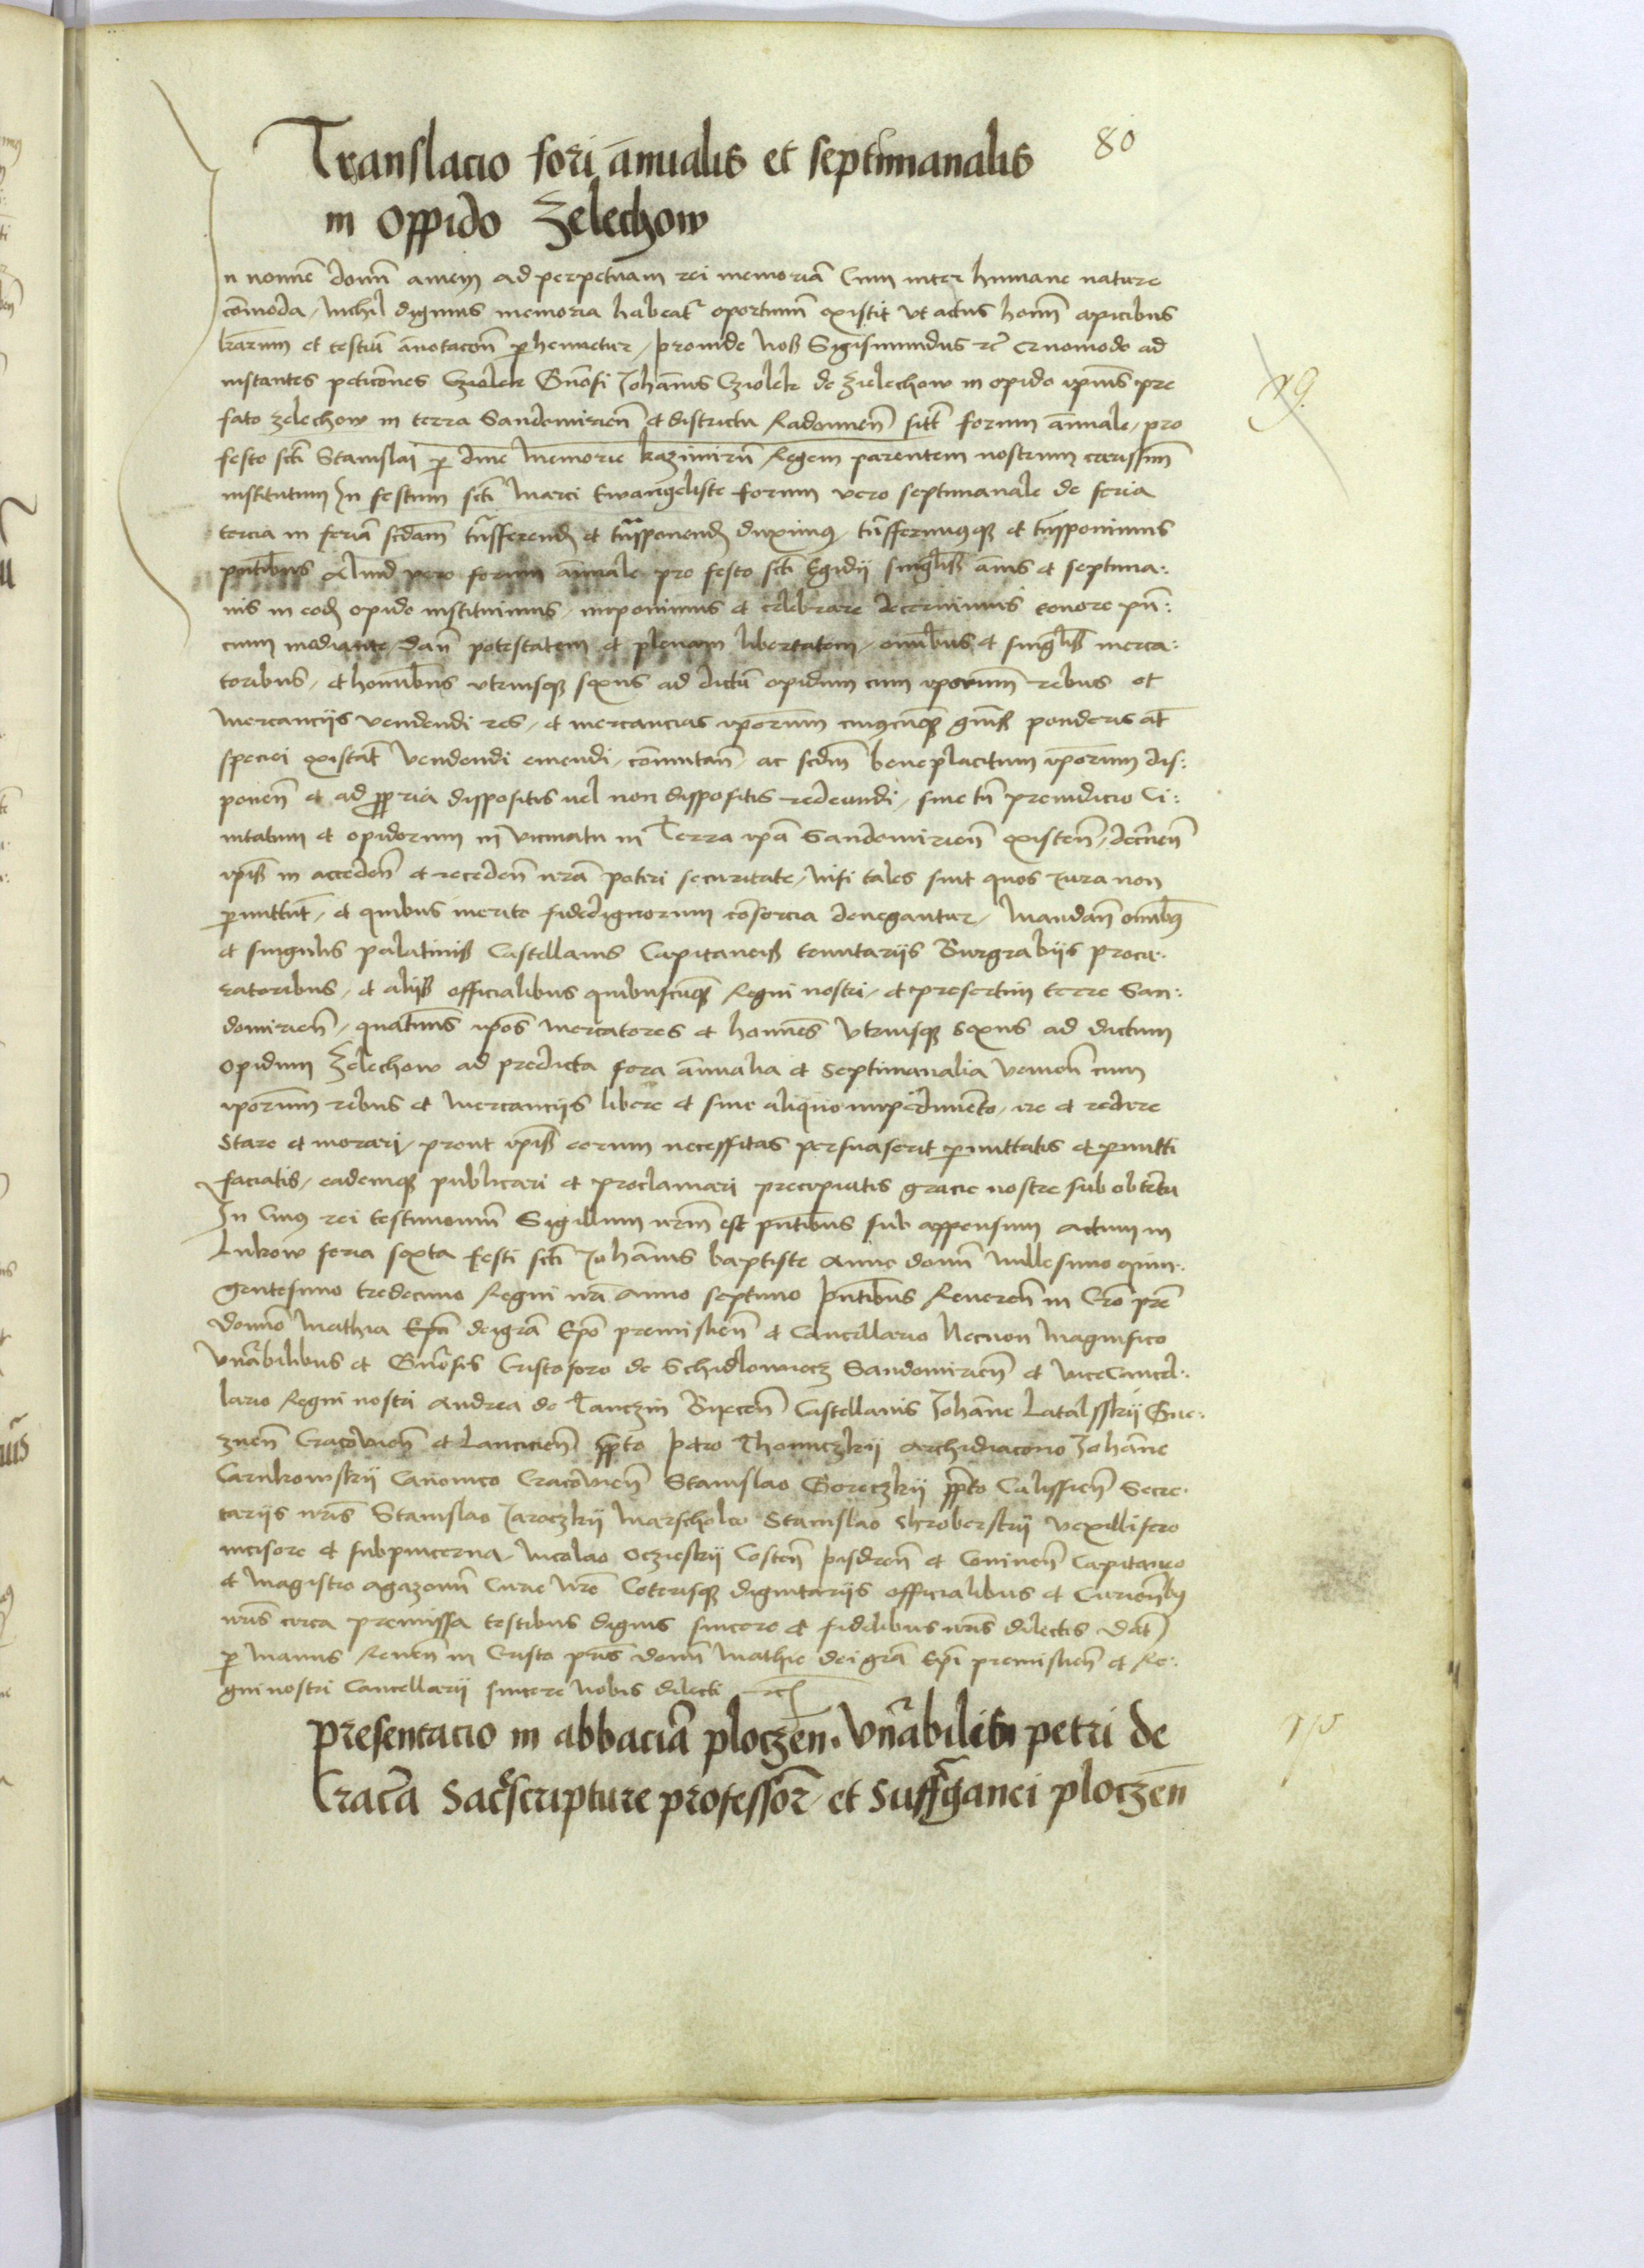 80
Translacio fori āнualis et septimanalis
in oppido Zelechow
In nomīe domī amen ad perpetuam rei memoriā Cum inter humane nature
cōmoda, nichil dignius memoria habeat' oportunū existit vt actus homī apicibus
lrārum et testiū ānotacōn perhennetur, proinde nos Sigismundus rc̄ Quomodo ad
instantes peticōnes Cziolek Gnōsi Johānis Cziolek de Zielechow in opido ipius pre
fato zelechow in terra Sandomirieñ et districtu Radomieñ sitt forum āнuale, pro
festo scti Stanislai per dive memorie kazimirū Regem parentem nostrum carissim
institutum In festum scti Marci Ewangeliste forum vero septimanale de feria
tercia in feriā scdam trāsferend et trāsponend duximus, trāsferimusque et trāsponimus
pntibus Aliud vero forum āнuale pro festo scti Egidij singlis ānis et septima:
nis in eod opido instituimus, imponimus et celebrare decernimus tenore pn̄:
cium mediante, dañ potestatem et plenam libertatem, omībus et singlis merca:
toribus, et homībus vtriusque sexus ad dictū opidum cum iporum rebus et
mercancijs vendendi res, et mercancias iporum cuiuscūque gnīs ponderis aut
speciei existāt vendendi emendi, cōmutañ, ac scdm beneplacitum iporum dis:
poneñ et ad ppria dispositis uel non dispositis redeundi, sine tn preiudicio Ci:
uitatum et opidorum in vicinatu in Terra ipa Sandomirieñ existeñ, decerneñ
ipis in accedeñ et recedeñ nrā poteri securitate, nisi tales sint quos iura non
permittūt, et quibus merito fidedignorum cōsorcia denegantur, Mandañ omībus
et singulis palatinis Castellanis Capitaneis tenutarijs Burgrabijs procu:
ratoribus, et alijs officialibus quibuscūque Regni nostri, et presertim terre San:
domirieñ, quatenus ipos mercatores et homines vtriusque sexus ad dictum
opidum Zelechow ad predicta fora āнualia et septimanalia venieñ cum
iporum rebus et mercancijs libere et sine aliquo impedimento, ire et redire
stare et morari, prout ipis eorum necessitas persuaserit permittatis et permitti
faciatis, eademque publicari et proclamari precipiatis gracie nostre sub obtētu
In Cuius rei testimoniū Sigillum nrm est pntibus sub appensum Actum in
Lukow feria sexta festi scti Johānis baptiste Anno domī Millesimo quin:
gentesimo tredecimo Regni nri Anno septimo pntibus Reuereñ in Cro pre
domīo Mathia Epō deigrā Epō premislieñ et Cancellario Necnon Magnifico
Vnrābilibus et Gnōsis Cristoforo de Schidlowiecz Sandomirieñ et vicecancel:
lario Regni nostri Andrea de Tanczin Bieceñ Castellanis Johāne Latalsskij Gne:
zneñ Cracovieñ et Lancicieñ ppto Petro Thomiczkij Archidiacono Johāne
Carnkowskij Canonico Cracovieñ Stanislao Goreczkij ppto Calissieñ Secre:
tarijs nris Stanislao Jaroczkij Marschalco Stanislao Chroberskij vexillifero
incisore et subpincerna, Nicolao oczieskij Costeñ pisdreñ et Conineñ Capitaneo
et magistro agazonū Curie nre Ceterisque dignitarijs officialibus et Curiensibus
nris circa premissa testibus dignis sincere et fidelibus nris dilectis Dat
per Manus Reueñ in Cristo pris domī Mathie dei grā Epi premislieñ et Re:
gni nostri Cancellarij sincere Nobis dilecti rc
presentacio in abbaciā ploczeñ. Vnrābilis petri de
Cracā Sacre scripture professor. et Suffrāganei ploczeñ